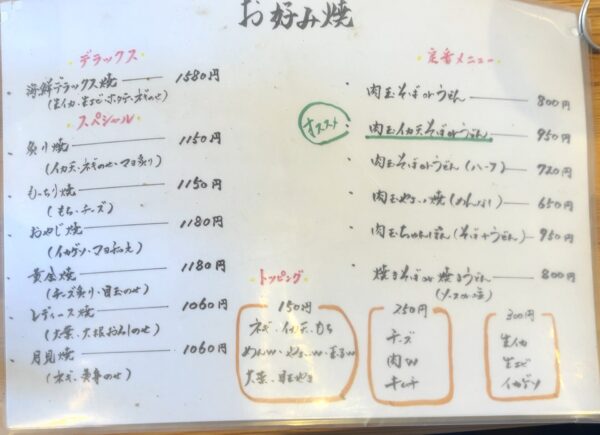 お好み焼
デラックス
海鮮デラックス焼 1580円
(生イカ、生エビ、ホタテ、ネギのせ)
スペシャル
炙り焼 1150円
(イカ天、ネギのせ、マヨ炙り)
もっちり焼 1150円
(もち、チーズ)
おやじ焼 1180円
(イカゲソ、マヨ和え)
黄金焼 1180円
(チーズ炙り、目玉のせ)
レディース焼 1060円
(大葉、大根おろしのせ)
月見焼 1060円
(ネギ、黄身のせ)
定番メニュー
肉玉そばorうどん 800円
オススメ
肉玉イカ天そばorうどん 950円
肉玉そばorうどん(ハーフ) 720円
肉玉やさい焼(めんなし) 650円
肉玉ちゃんぽん(そば+うどん) 950円
焼きそばor焼きうどん 800円
トッピング
150円
ネギ、イカ天、もち
めんW、やさいW、玉子W
大葉、目玉やき
250円
チーズ
肉W
キムチ
300円
生イカ
生エビ
イカゲソ